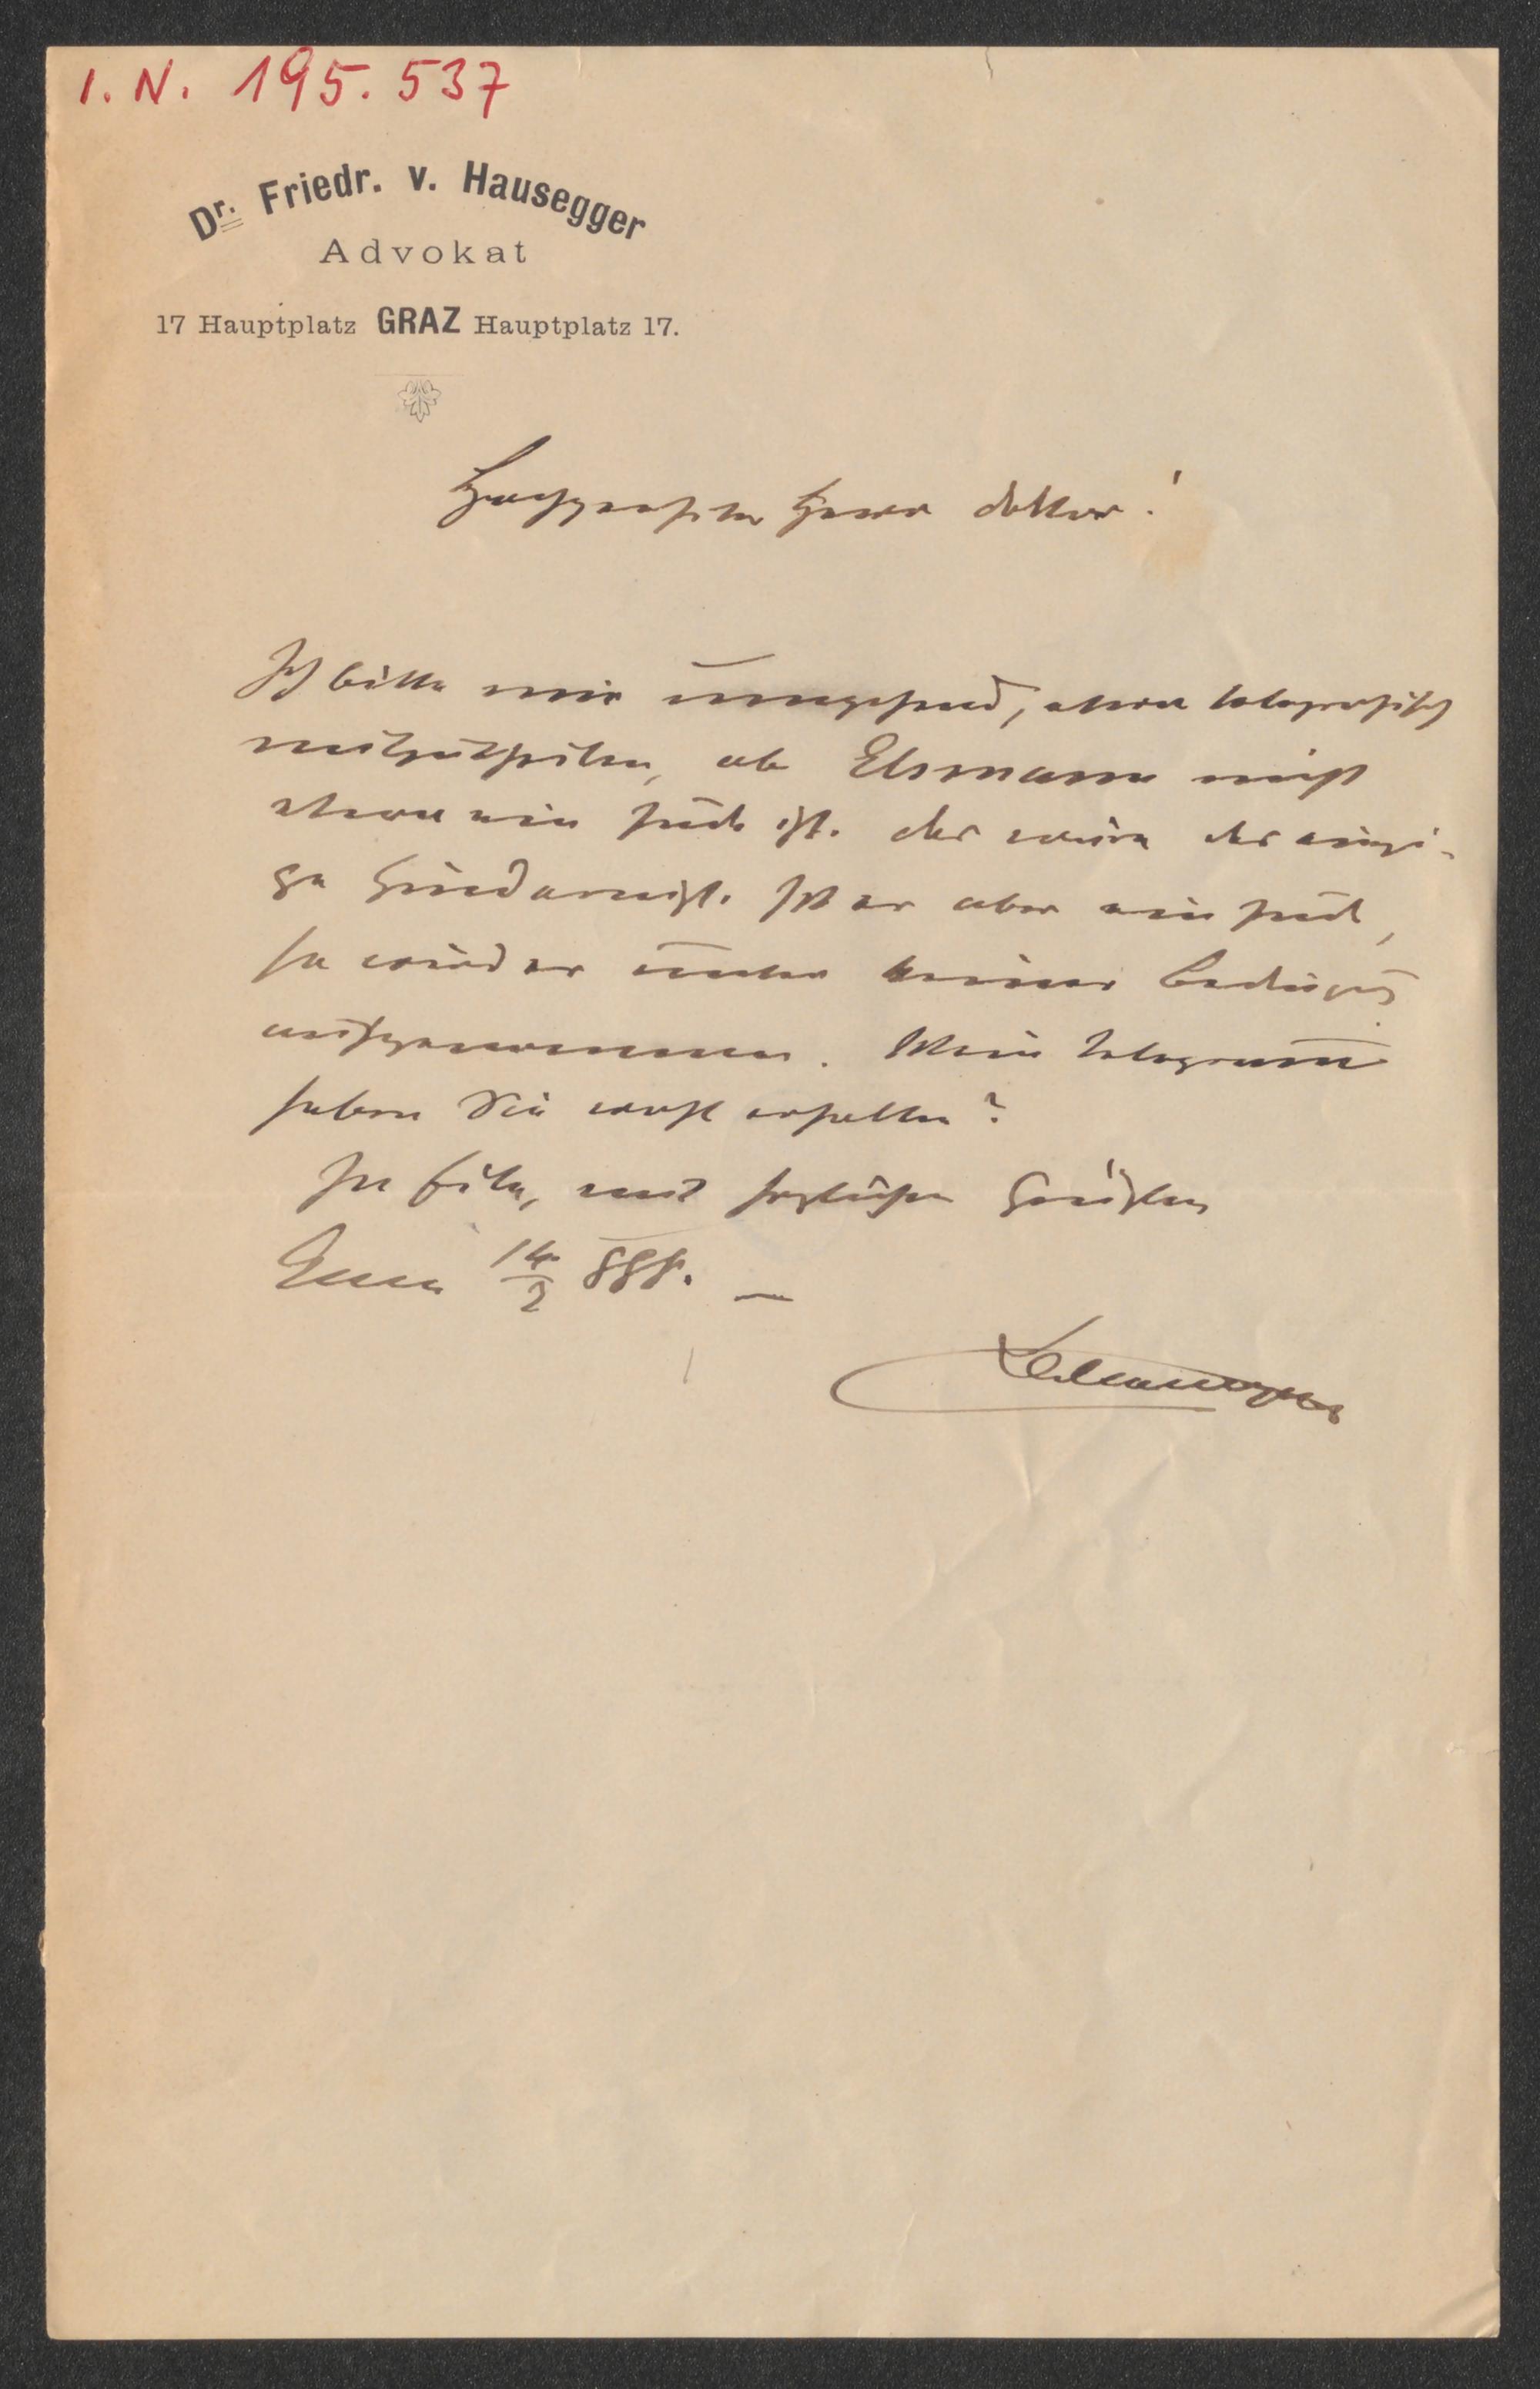 I. N. 195.537
Dr. Friedr. v. Hausegger
Advokat
17 Hauptplatz GRAZ Hauptplatz 17.
Hochgeehrter Herr Doktor!
Ich bitte mir umgehend, etwa telegrafisch
mitzutheilen, ob Elsmann nicht
etwa ein Jude ist. das wäre das einzi-
ge Hinderniß. Ist er aber ein Jud,
so wird er unter keiner Bedingung
aufgenommen. Mein Telegramm
haben Sie wohl erhalten?
In Eile, mit herzlichen Grüßen
14/2 888.
Hausegger